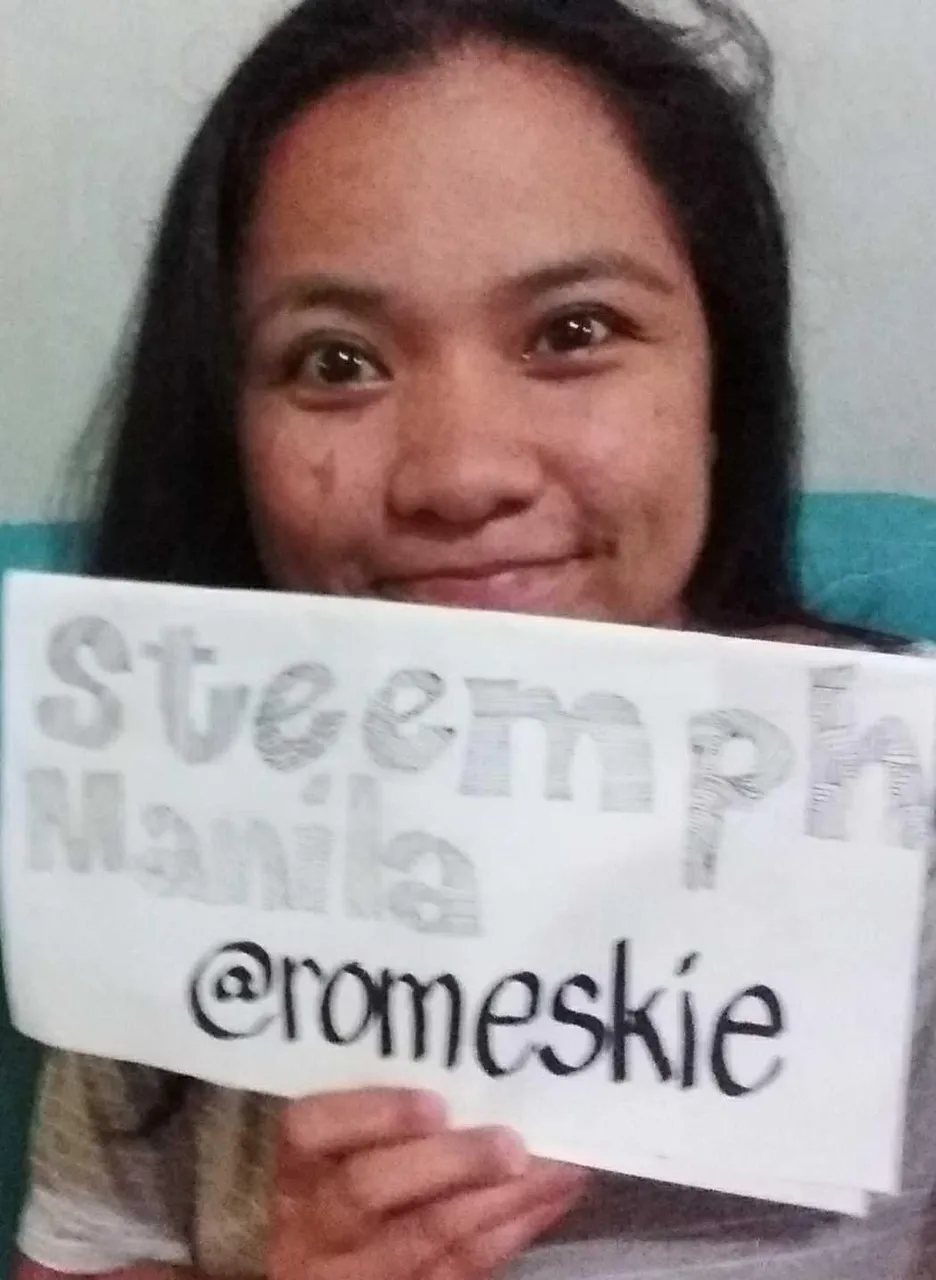 Steemph
Manila
@romeskie